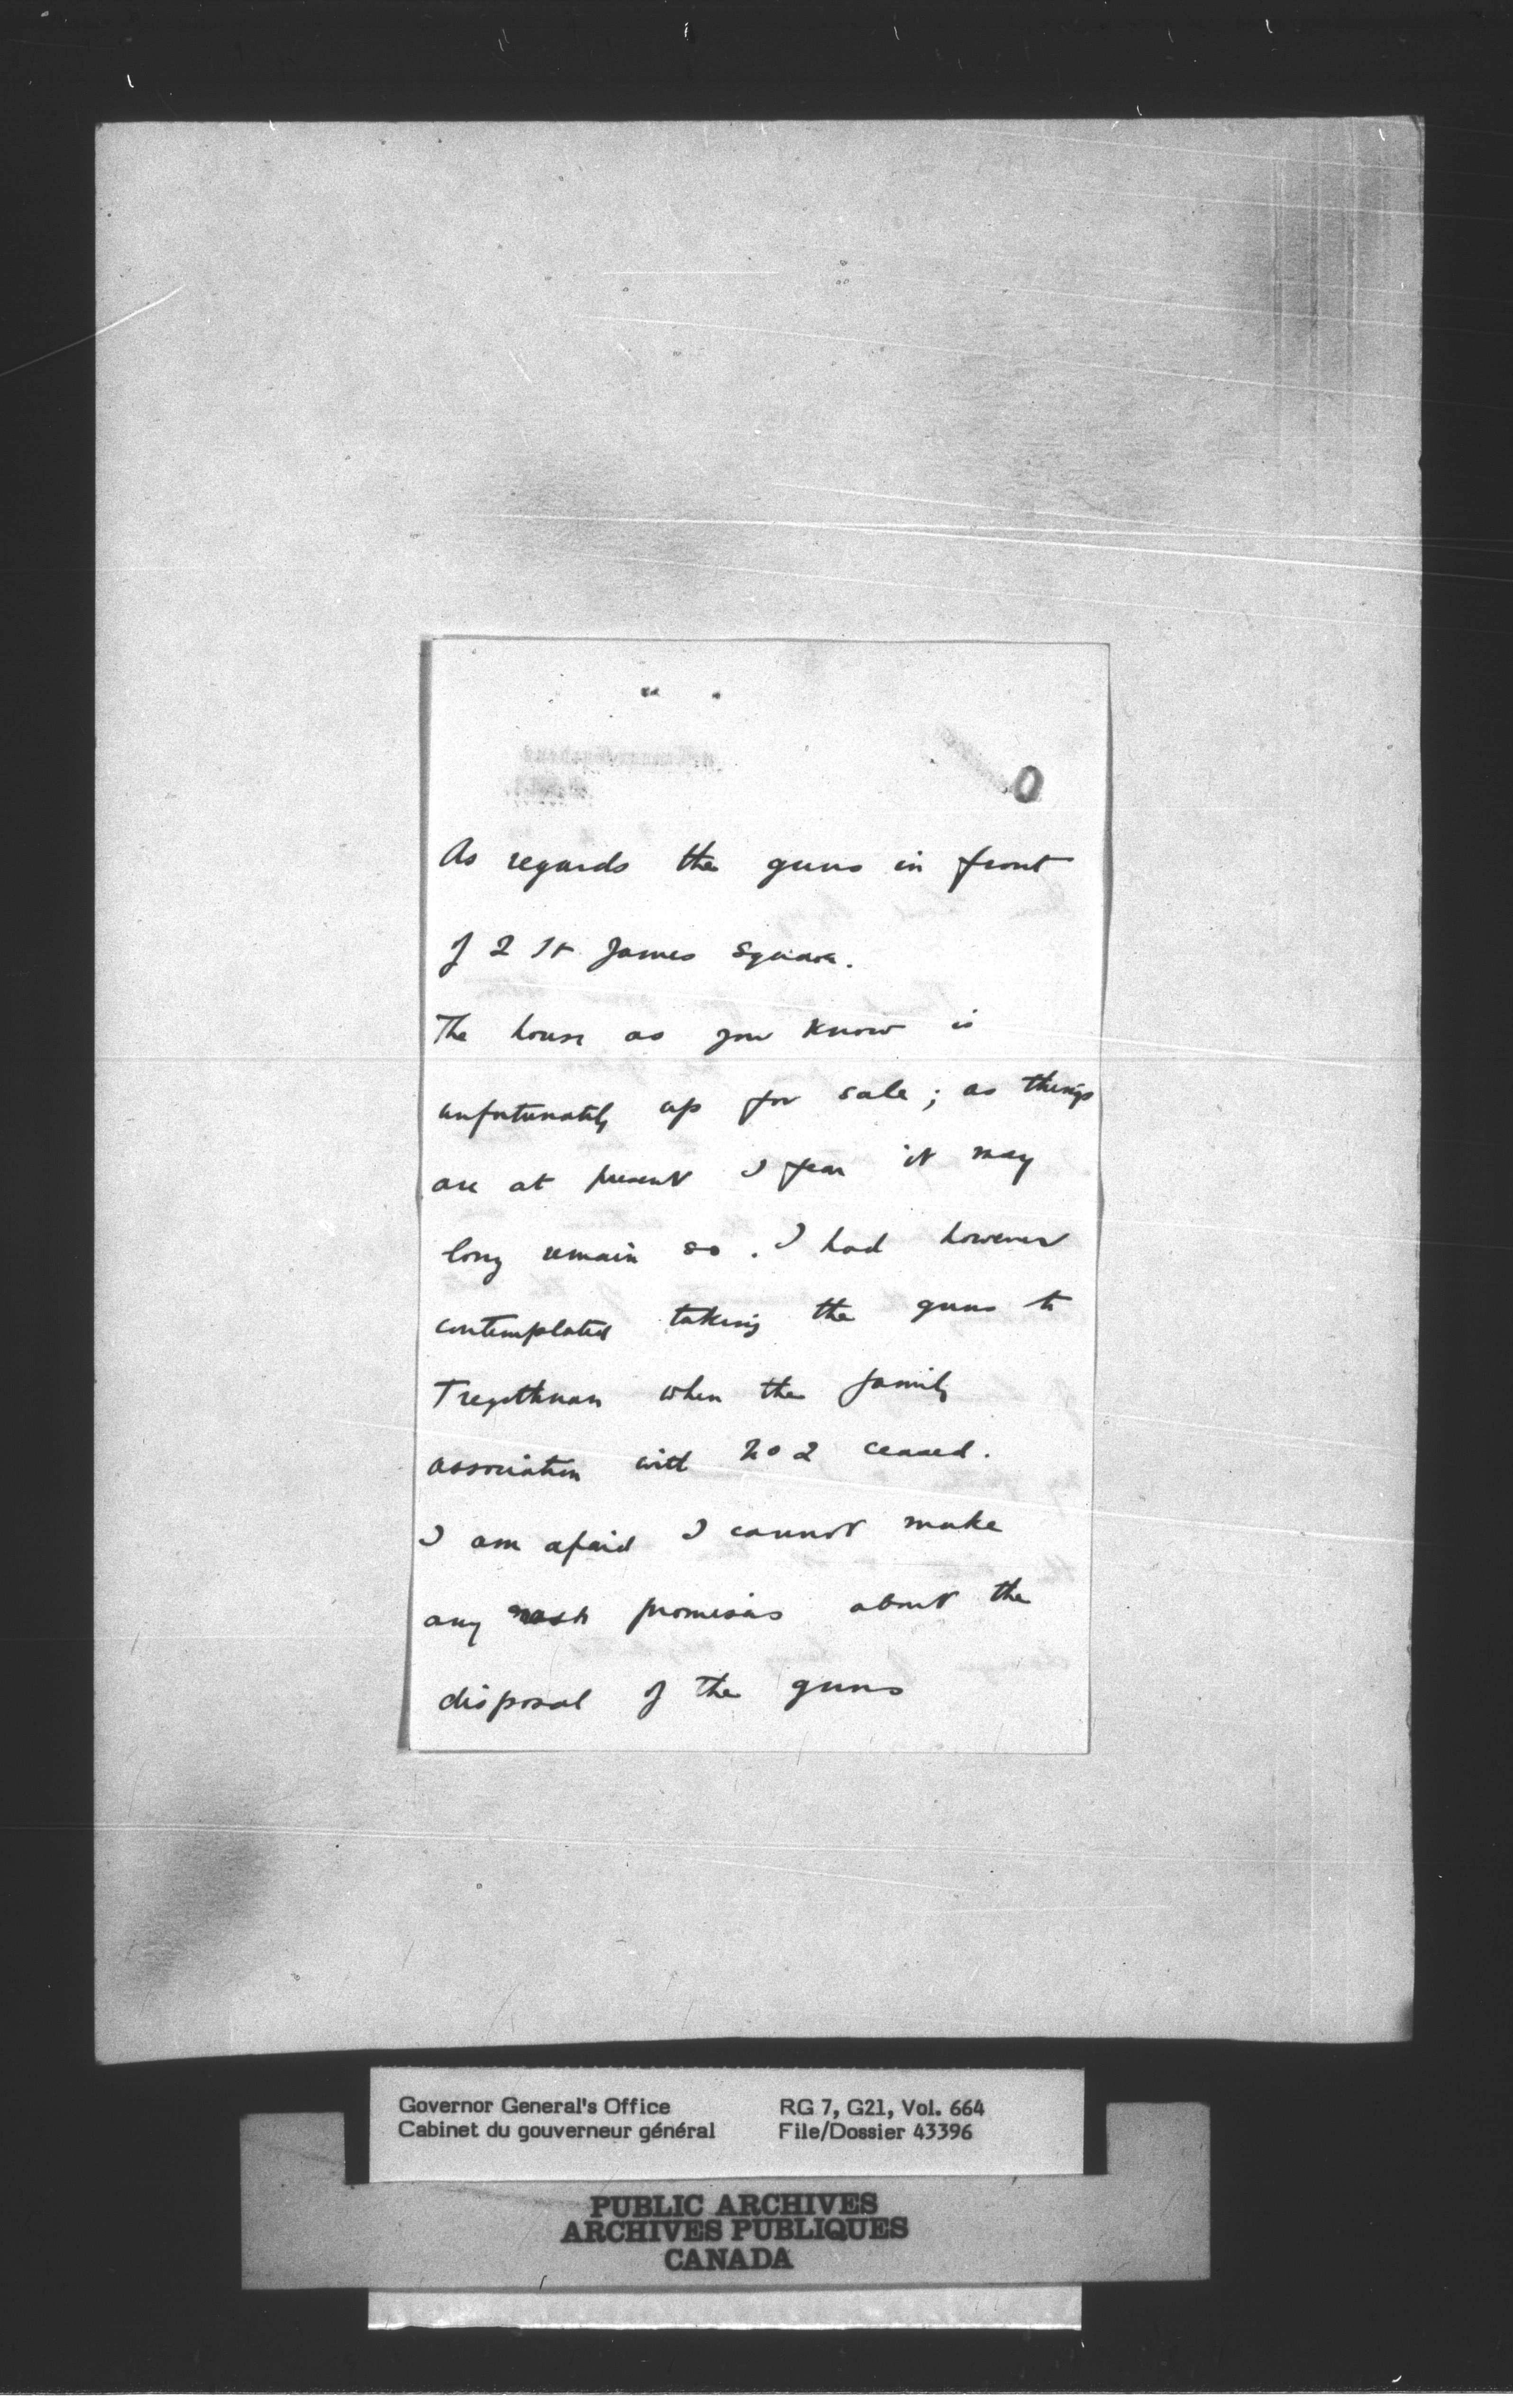 0
As regards the guns in front
of 2 St James Square.
The house as you know is
unfortunately up for sale; as things
are at present I fear it may
long remain so. I had however
contemplated taking the guns to
Tregothnan when the family
association with No 2 ceased.
I am afraid I cannot make
any rash promises about the
disposal of the guns
Governor General's Office
Cabinet du gouverneur général
RG 7, G21, Vol. 664
File/Dossier 43396
PUBLIC ARCHIVES
ARCHIVES PUBLIQUES
CANADA